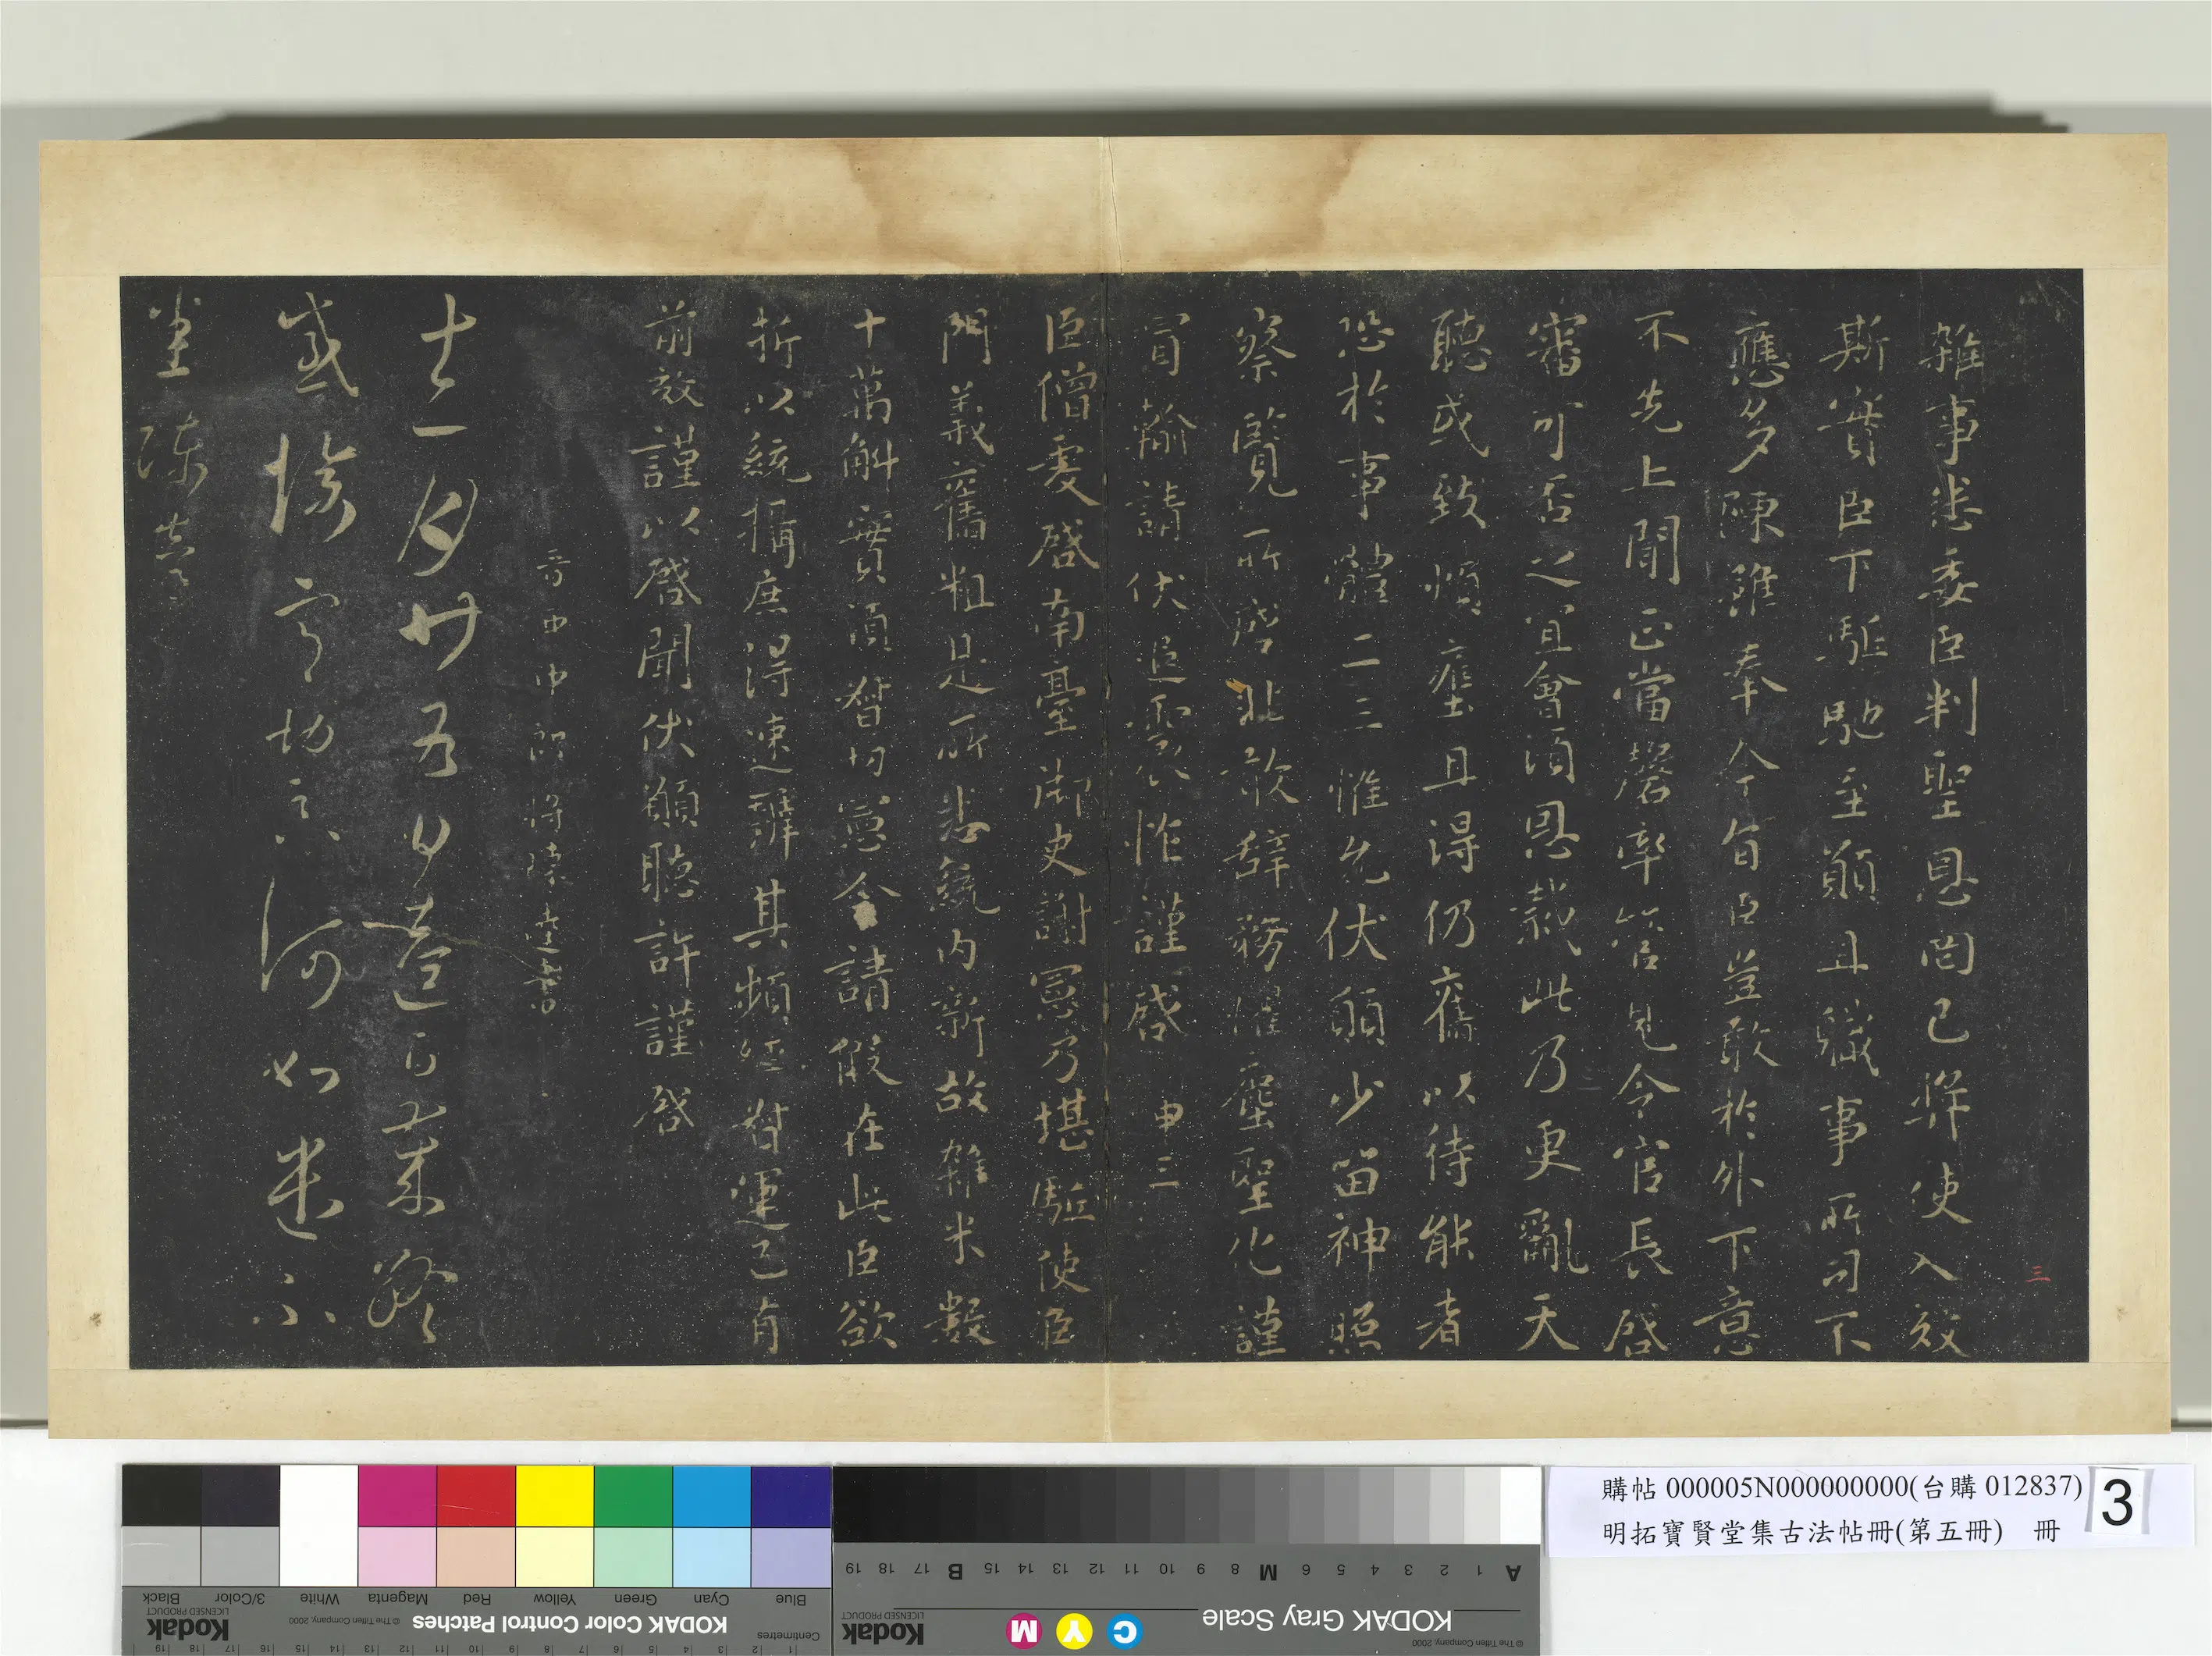 雜事悉委臣判聖恩罔已辟使入效
斯實臣下駈馳至願且職事所司下
應多陳雖奉今旨臣豈敢於外下意
不先上聞正當罄率管見令官長啓
審可否之宜會須恩裁此乃更亂天
聽或致煩塵且得仍舊以待能者
恐於事體二三惟允伏願少留神照
察覽所啓非敢辞務懼塵聖化謹
冒輸請伏追震怍謹啓 申三
臣僧虔啓南臺御史謝憲乃堪駈使臣
門義舊粗是所悉統内新故雜米數
十萬斛實須督切憲令請假在此臣欲
折以統攝庶得速辦其頻經督運已有
前效謹以啓聞伏願聽許謹啓
晋西中郎將陳逵書
十一月廿五日逵白歲終
感悼兼切念何如遣不
坐陳逵
三
購帖 000005N000000000(台購 012837)
明拓寶賢堂集古法帖冊(第五冊) 冊
3
KODAK Color Control Patches
© The Tiffen Company, 2000
Kodak
LICENSED PRODUCT
Blue Cyan Green Yellow Red Magenta White 3/Color Black
Centimetres
KODAK Gray Scale
© The Tiffen Company, 2000
C Y M
Kodak
LICENSED PRODUCT
A 1 2 3 4 5 6 M 8 9 10 11 12 13 14 15 B 17 18 19